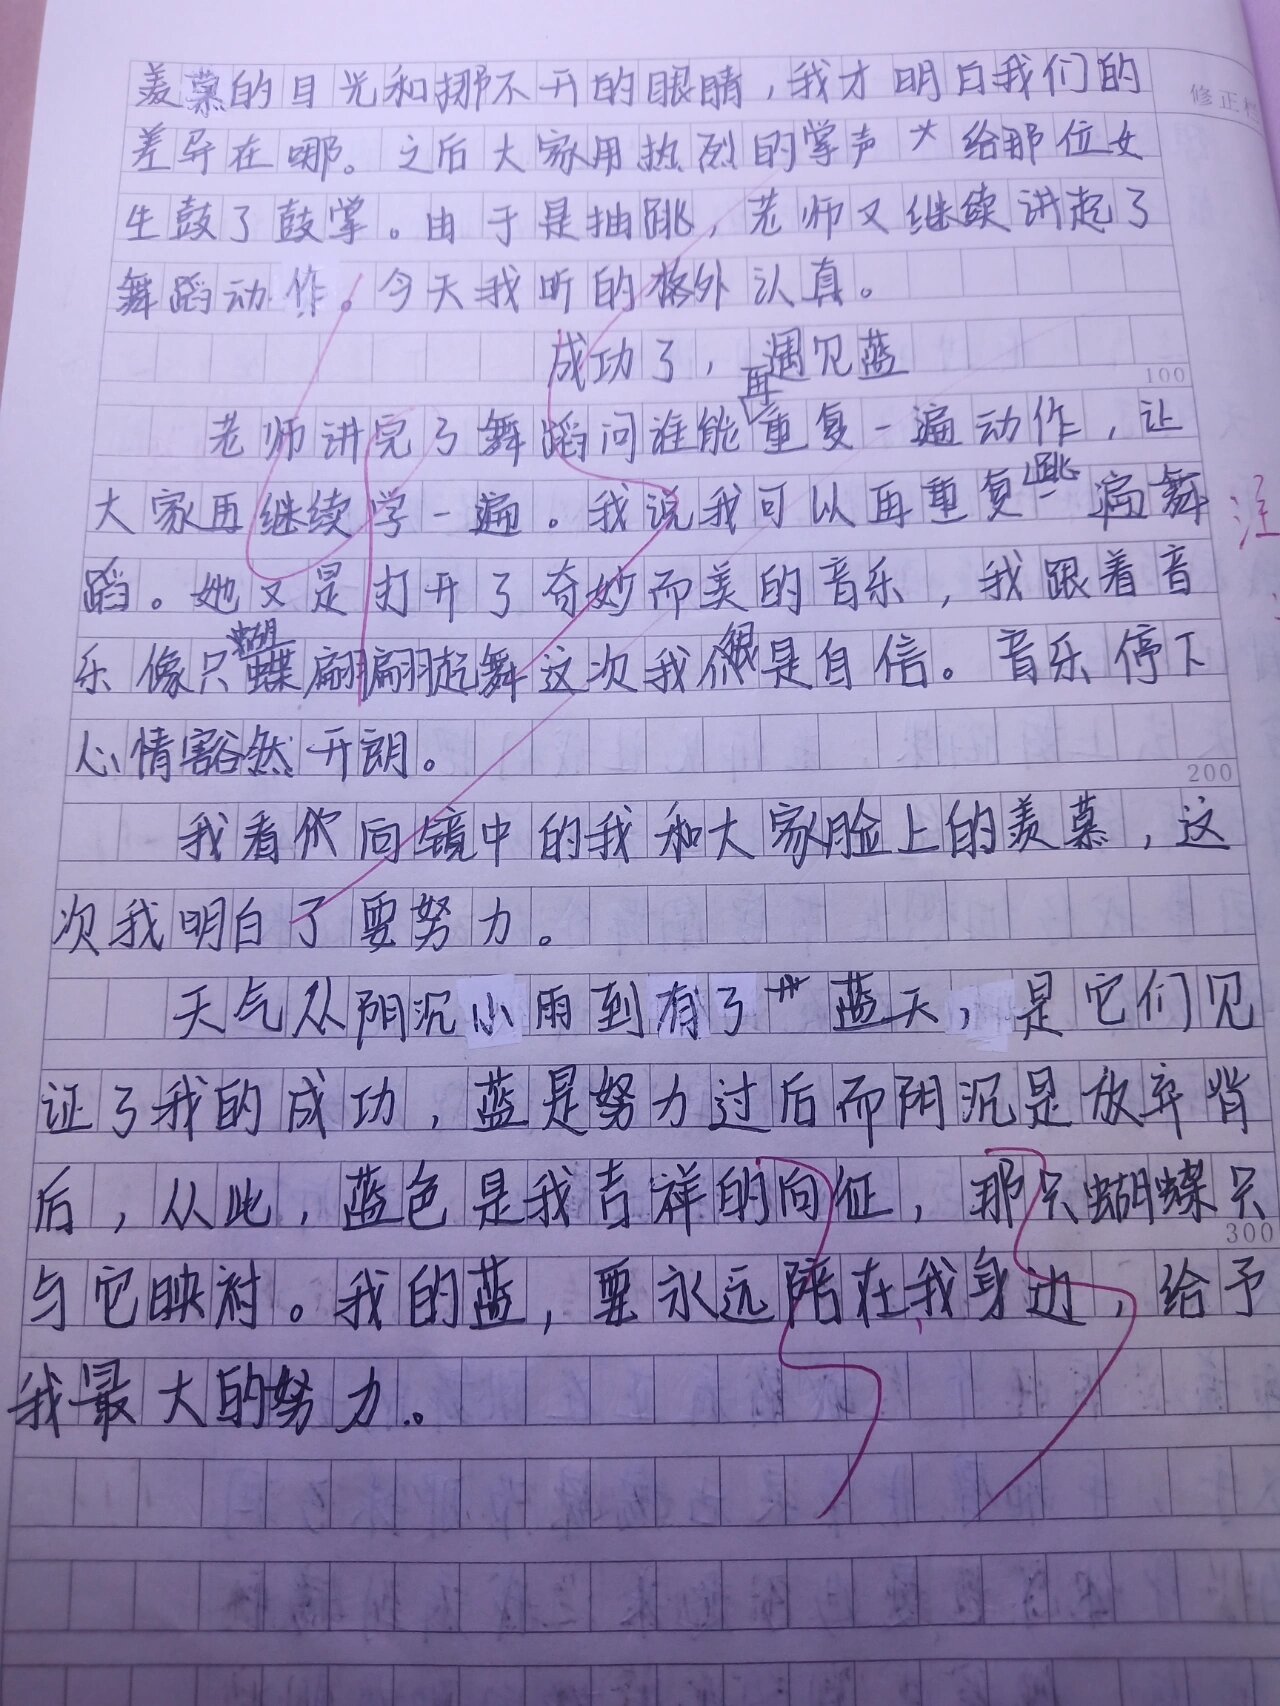 羡慕的目光和挪不开的眼睛，我才明白我们的
修正栏
差异在哪。之后大家用热烈的掌声给那位女
生鼓了鼓掌。由于是抽跳，老师又继续讲起了
舞蹈动作。今天我听的格外认真。
成功了，再遇见蓝
100
老师讲完了舞蹈问谁能重复一遍动作，让
大家再继续学一遍。我说我可以再重复跳一遍舞
蹈。她又是打开了奇妙而美的音乐，我跟着音
乐像只蝴蝶翩翩起舞这次我很是自信。音乐停下
心情豁然开朗。
200
我看你向镜中的我和大家脸上的羡慕，这
次我明白了要努力。
天气从阴沉小雨到有了艹蓝天，是它们见
证了我的成功，蓝是努力过后而阴沉是放弃背
后，从此，蓝色是我吉祥的向征，那只蝴蝶只
300
与它映衬。我的蓝，要永远陪在我身边，给予
我最大的努力。